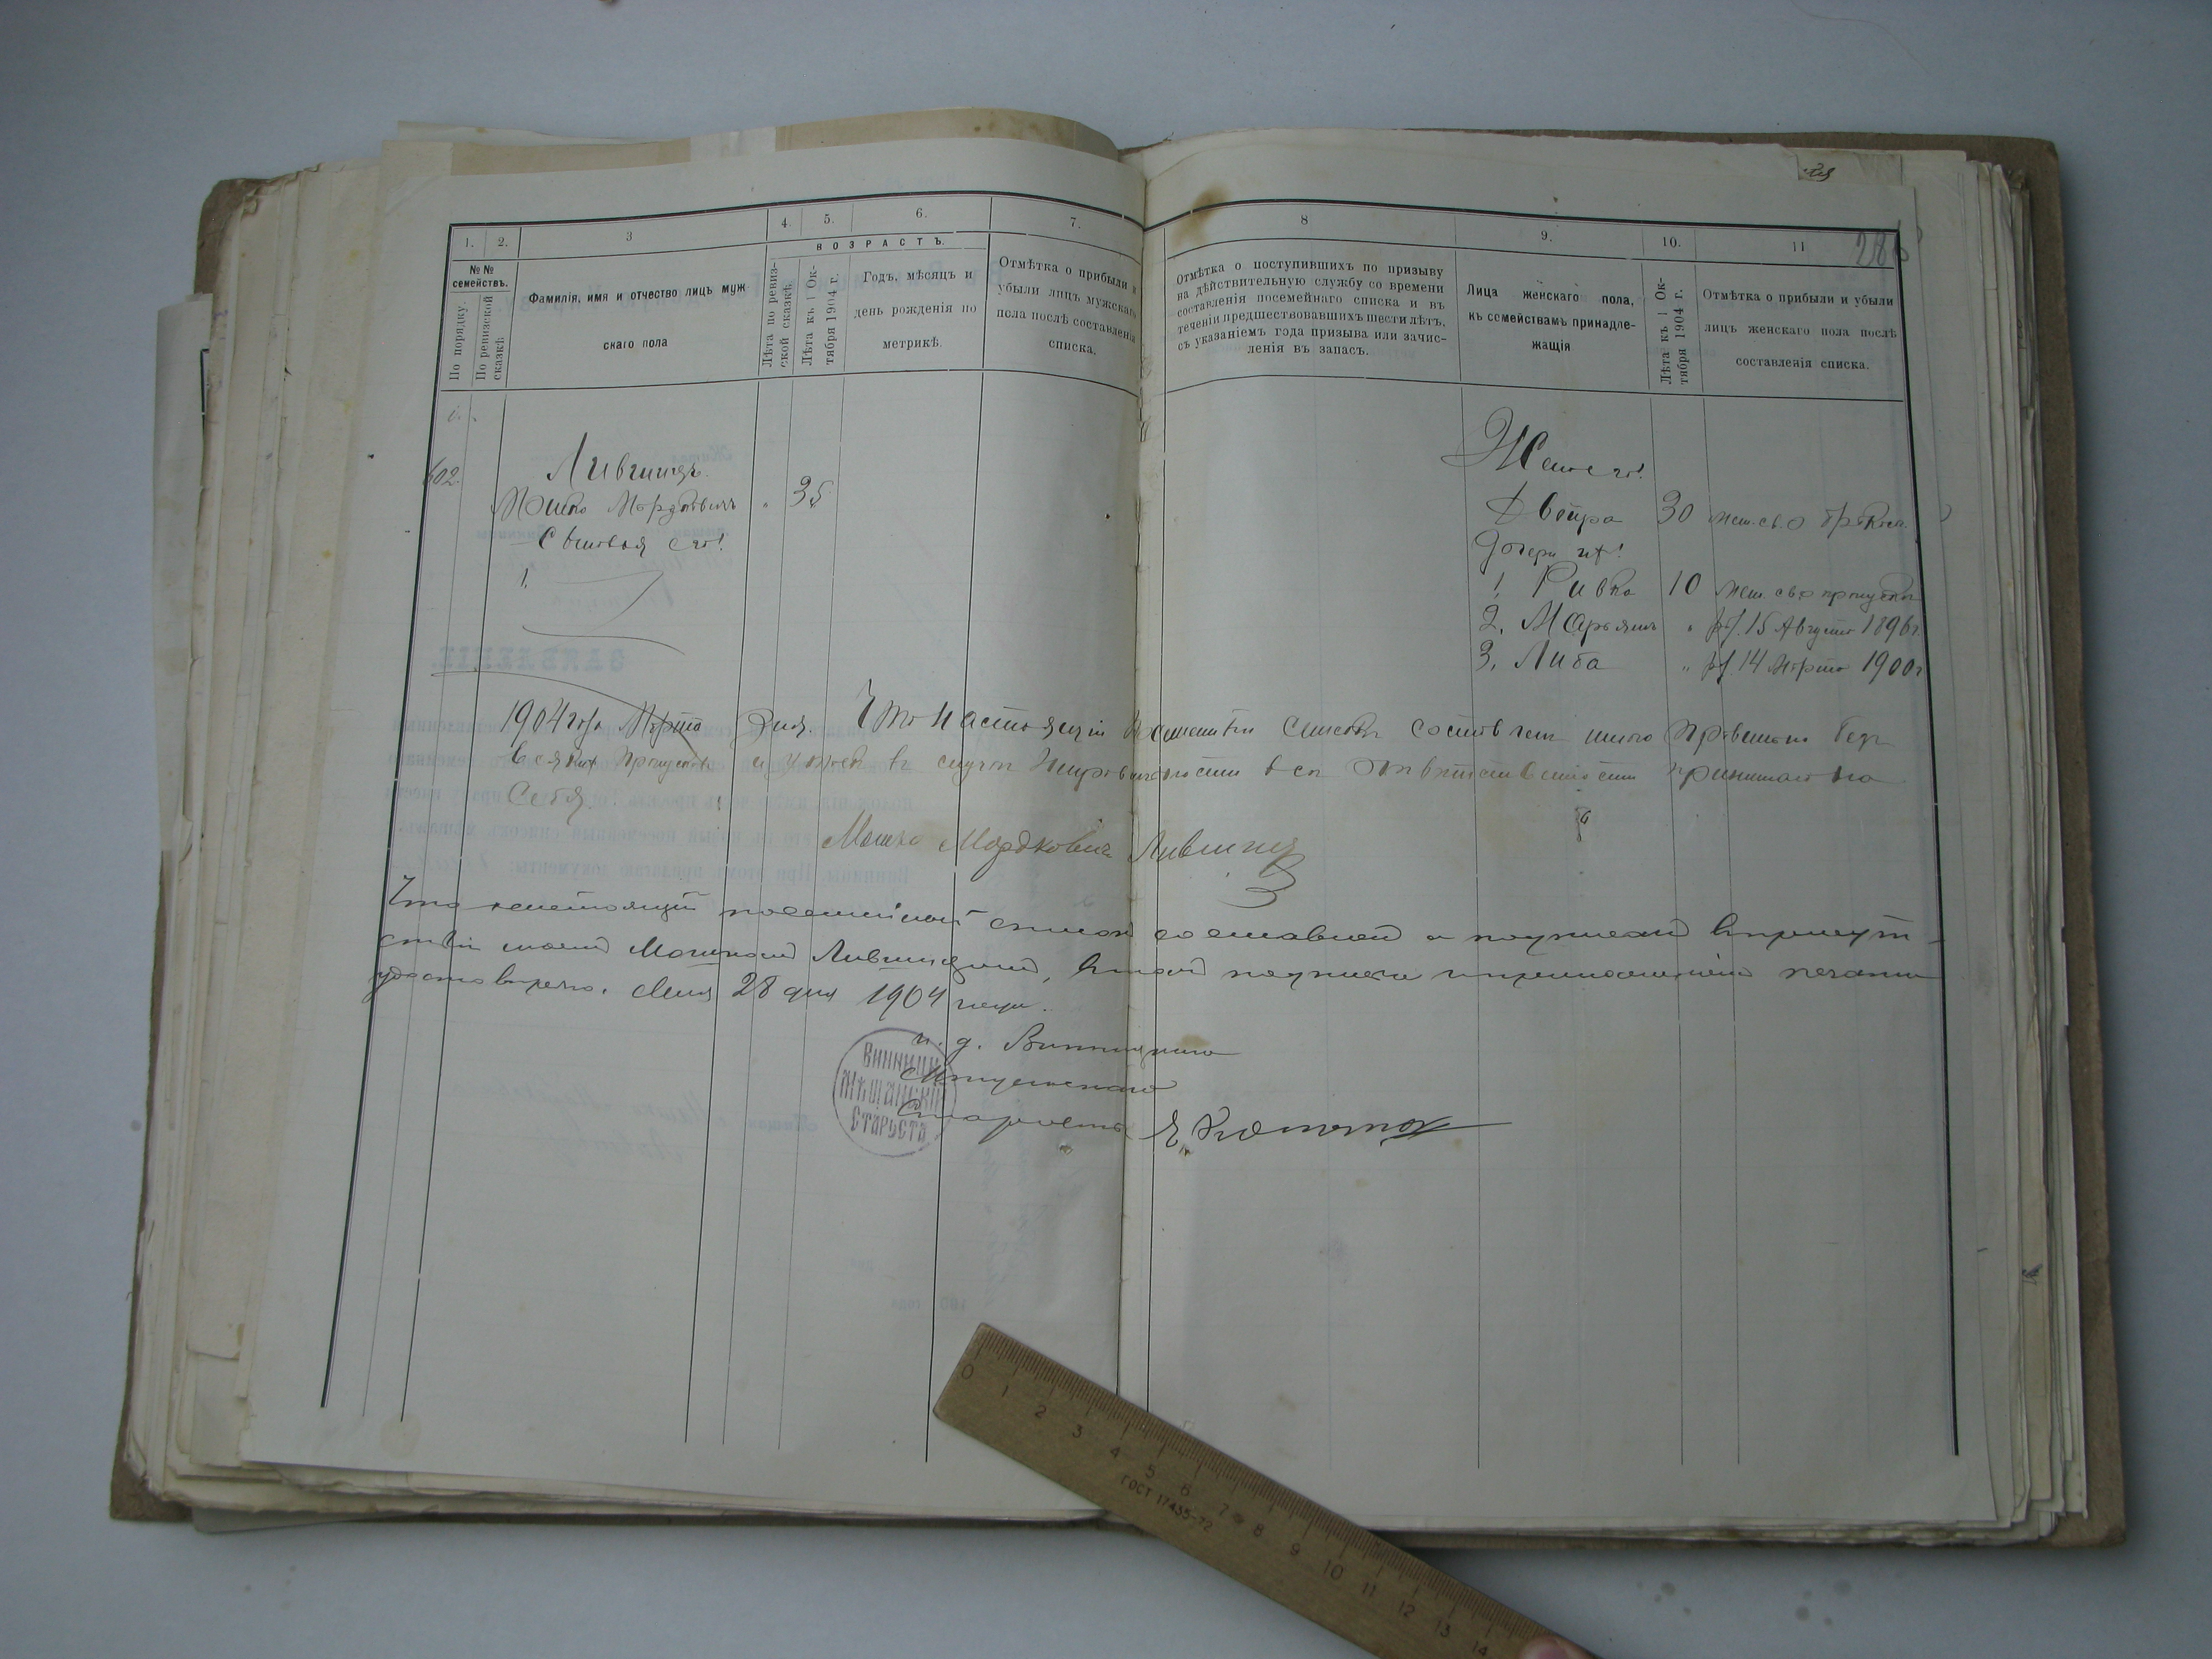 286
1.
2.
3
4.
5.
6.
7.
8
9.
10.
11
№№ семействъ.
По порядку.
По ревизской сказкѣ
Фамилія, имя и отчество лицъ муж-
скаго пола
ВОЗРАСТЪ.
Лѣта по ревиз-
ской сказкѣ.
Лѣта къ 1 Ок-
тября 1904 г.
Годъ, мѣсяцъ и
день рожденія по
метрикѣ.
Отмѣтка о прибыли и
убыли лицъ мужскаго
пола послѣ составленія
списка.
Отмѣтка о поступившихъ по призыву
на дѣйствительную службу со времени
составленія посемейнаго списка и въ
теченіи предшествовавшихъ шести лѣтъ,
съ указаніемъ года призыва или зачис-
ленія въ запасъ.
Лица женскаго пола,
къ семействамъ принадле-
жащія
Лѣта къ 1 Ок-
тября 1904 г.
Отмѣтка о прибыли и убыли
лицъ женскаго пола послѣ
составленія списка.
602.
Лившицъ.
Мошко Мордковичъ " 35
Сыновья его:
1.
Жена его:
Двойра 30 мет. св. о бракосоч.
Дочери их:
1. Ривка 10 мет. св. о
2. Марьямъ " р. 15 Августа 1896 г
3. Либа " р. 14 Марта 1900 г
1904 года Марта дня. Что настоящій посемейный списокъ составленъ мною правильно безъ
всяких пропусковъ и утаекъ въ случаѣ неправильности всю отвѣтственность принимаю на
себя.
Мошко Мордковичъ Лившицъ
Что настоящій посемейный списокъ составленъ и подписанъ въ присут-
ствіи моемъ Мошкомъ Лившицемъ, въ томъ подписью и приложеніемъ печати
удостовѣряю. Мая 28 дня 1904 года.
и. д. Винницкаго
Мѣщанскаго
Старосты
ВИННИЦКІЙ
МѢЩАНСКІЙ
СТАРОСТА
ЗАЯВЛЕНІЕ.
0 1 2 3 4 5 6 7 8 9 10 11 12 13 14
ГОСТ 17435-72